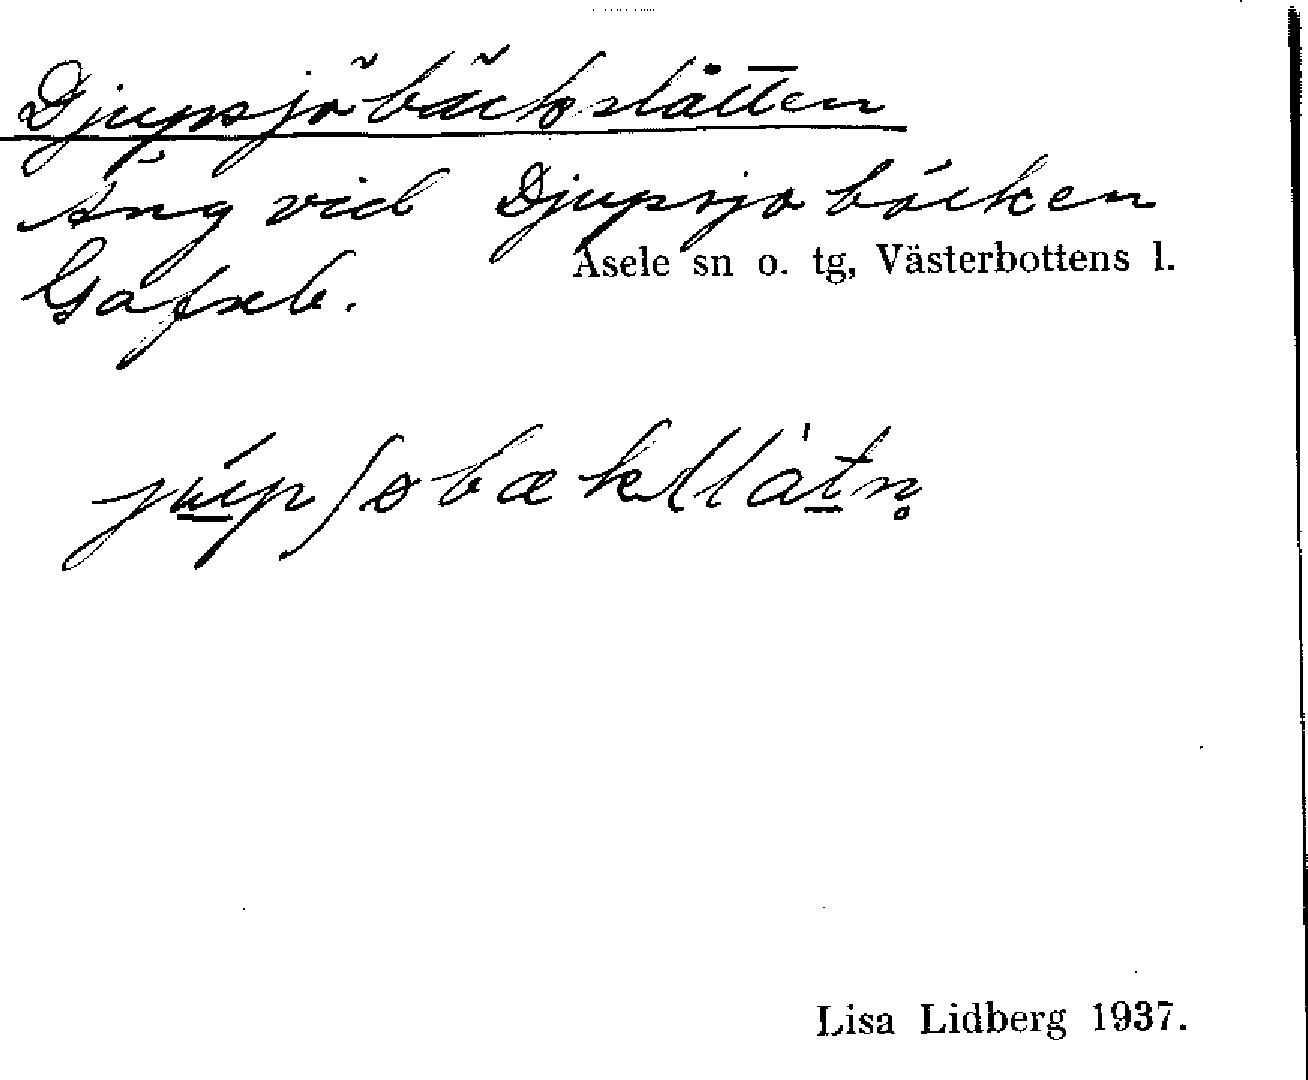 Djupsjöbäckslåtten
Äng vid Djupsjöbäcken
Åsele sn o. tg, Västerbottens l.
Gafseb.
Lisa Lidberg 1937.